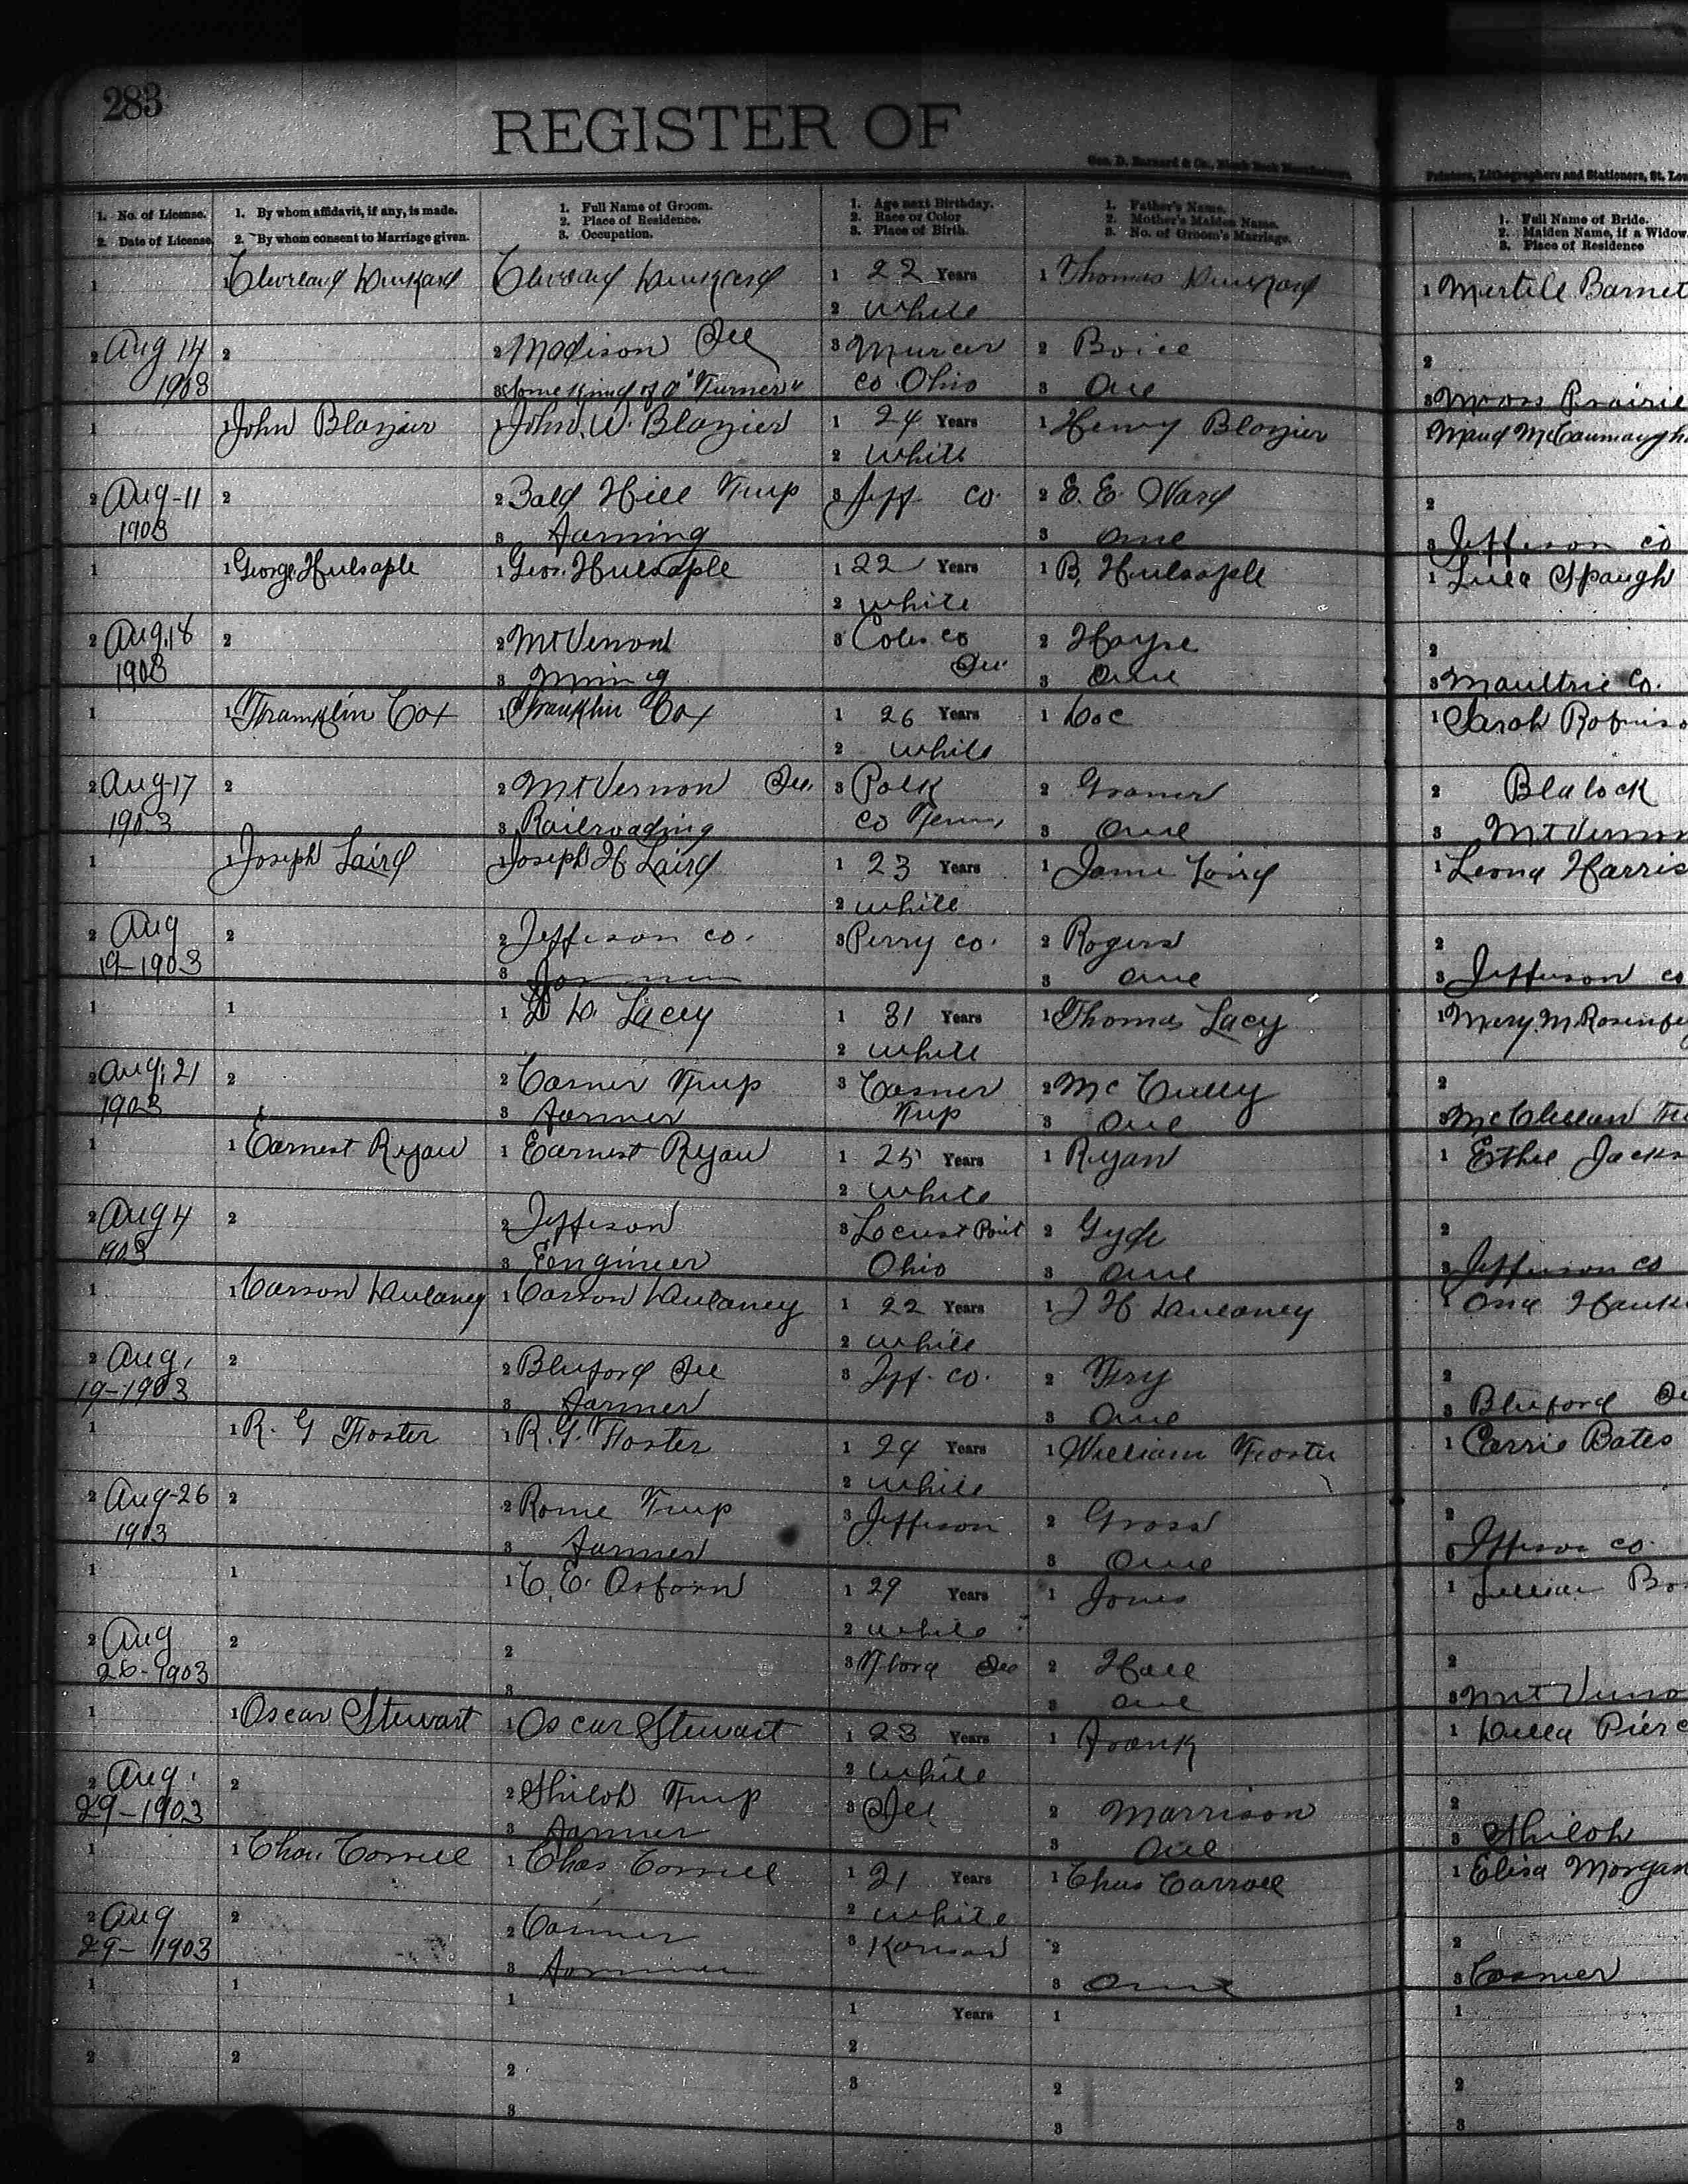 283
REGISTER OF
Geo. D. Barnard & Co., Blank Book Manufacturers,
Printers, Lithographers and Stationers, St. Lou
1. No. of License.
2. Date of License.
1. By whom affidavit, if any, is made.
2. By whom consent to Marriage given.
1. Full Name of Groom.
2. Place of Residence.
3. Occupation.
1. Age next Birthday.
2. Race or Color
3. Place of Birth.
1. Father's Name.
2. Mother's Maiden Name.
3. No. of Groom's Marriage.
1. Full Name of Bride.
2. Maiden Name, if a Widow.
3. Place of Residence
1 1 Cleveland 1 Cleveland 1 22 Years 1 Thomas 1 Mertile Barnet
2 White
2 Aug 14 2 2 Madison Ill 3 Murcer 2 Boice 2
1903 3 Some kind of a "Turner" Co Ohio 3 One 3 Moors Prairie
1 1 John Blazier 1 John W. Blazier 1 24 Years 1 Henry Blazier 1 Maud
2 White
2 Aug-11 2 2 Bald Hill Twp 3 Jeff Co. 2 E. E. Ward 2
1903 3 Farming 3 One 3 Jefferson Co
1 1 George Hulsaple 1 Geo. Hulsaple 1 22 Years 1 B, Hulsaple 1 Lula Spaugh
2 White
2 Aug. 18 2 2 Mt Vernon 3 Coles Co 2 Hayse 2
1903 3 Mining Ill 3 One 3 Maultrie Co.
1 1 Franklin Cox 1 Franklin Cox 1 26 Years 1 Doc 1 Sarah Robinso
2 White
2 Aug-17 2 2 Mt Vernon Ill. 3 Polk 2 Gramer 2 Blalock
1903 3 Railroading Co Tenn, 3 One 3 Mt Vernon
1 1 Joseph Laird 1 Joseph H Laird 1 23 Years 1 Jame Laird 1 Leona Harris
2 White
2 Aug 2 2 Jefferson Co. 3 Perry Co. 2 Rogers 2
19-1903 3 Farmer 3 One 3 Jefferson Co
1 1 1 L D. Lacey 1 31 Years 1 Thomas Lacy 1 Mary M Rosenbe
2 White
2 Aug. 21 2 2 Casner Twp 3 Casner 2 Mc Cully 2
1903 3 Farmer Twp 3 One 3 McClellan Tw
1 1 Earnest Ryan 1 Earnest Ryan 1 25 Years 1 Ryan 1 Ethel Jacks
2 White
2 Aug 4 2 2 Jefferson 3 Locust Point 2 Gyde 2
1903 3 Eengineer Ohio 3 One 3 Jefferson Co
1 1 Carson Dulaney 1 Carson Dulaney 1 22 Years 1 J H Dulaney 1 Ona Hawk
2 White
2 Aug, 2 2 Bluford Ill 3 Jeff. Co. 2 Fry 2
19-1903 3 Farmer 3 One 3 Bluford Ill
1 1 R. G Foster 1 R. G. Foster 1 24 Years 1 William Froster 1 Carrie Bates
2 White
2 Aug-26 2 2 Rome Twp 3 Jefferson 2 Gross 2
1903 3 Farmer 3 One 3 Jefferson Co.
1 1 1 C. E. Osborn 1 29 Years 1 Jones 1 Lillian Bo
2 White
2 Aug 2 2 3 Flora Ill 2 Hall 2
26-1903 3 3 One 3 Mt Verno
1 1 Oscar Stewart 1 Oscar Stewart 1 23 Years 1 Frank 1 Della Pierc
2 White
2 Aug. 2 2 Shiloh Twp 3 Ill 2 Marrison 2
29-1903 3 Farmer 3 One 3 Shiloh
1 1 Chas. Correll 1 Chas Correll 1 21 Years 1 Chas Carroll 1 Elisa Morgan
2 White
2 Aug 2 2 Casner 3 Kansas 2 2
29-1903 3 Farmer 3 One 3 Casner
1 1 1 1 Years 1 1
2 2 2 2 2 2
3 3 3 3